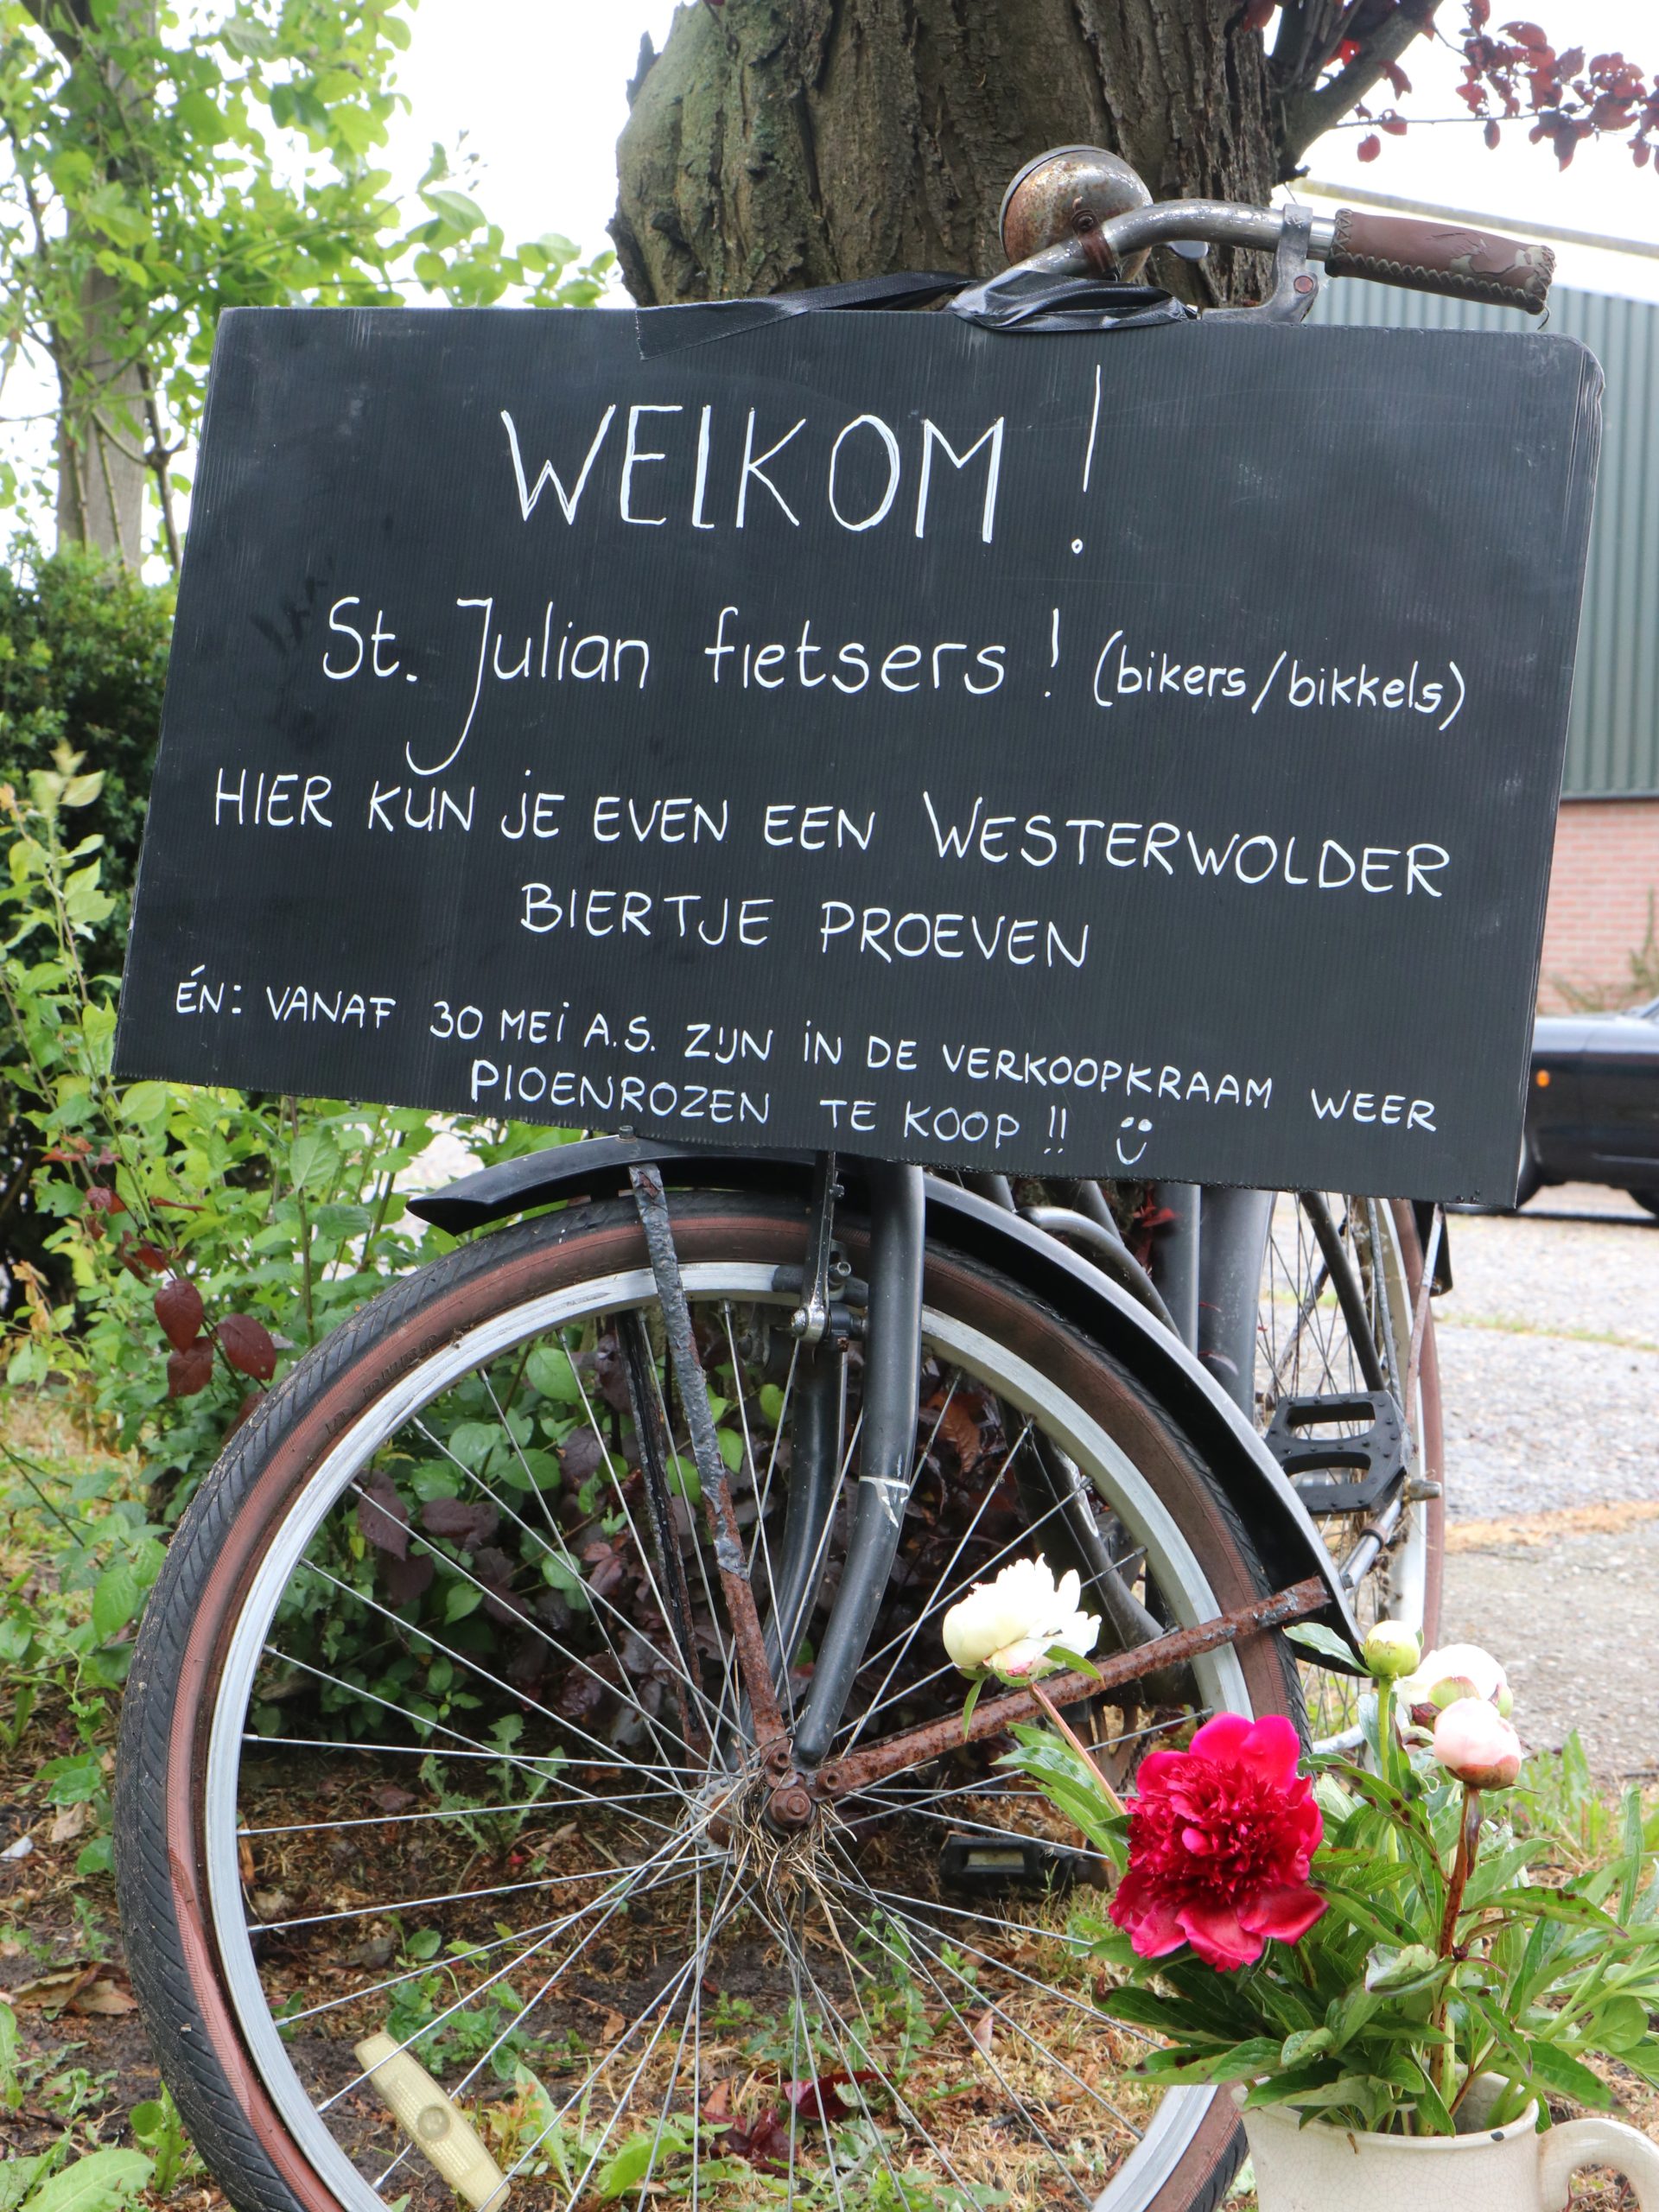 WELKOM !
St. Julian fietsers ! (bikers/bikkels)
HIER KUN JE EVEN EEN WESTERWOLDER
BIERTJE PROEVEN
ÉN: VANAF 30 MEI A.S. ZIJN IN DE VERKOOPKRAAM WEER
PIOENROZEN TE KOOP !!